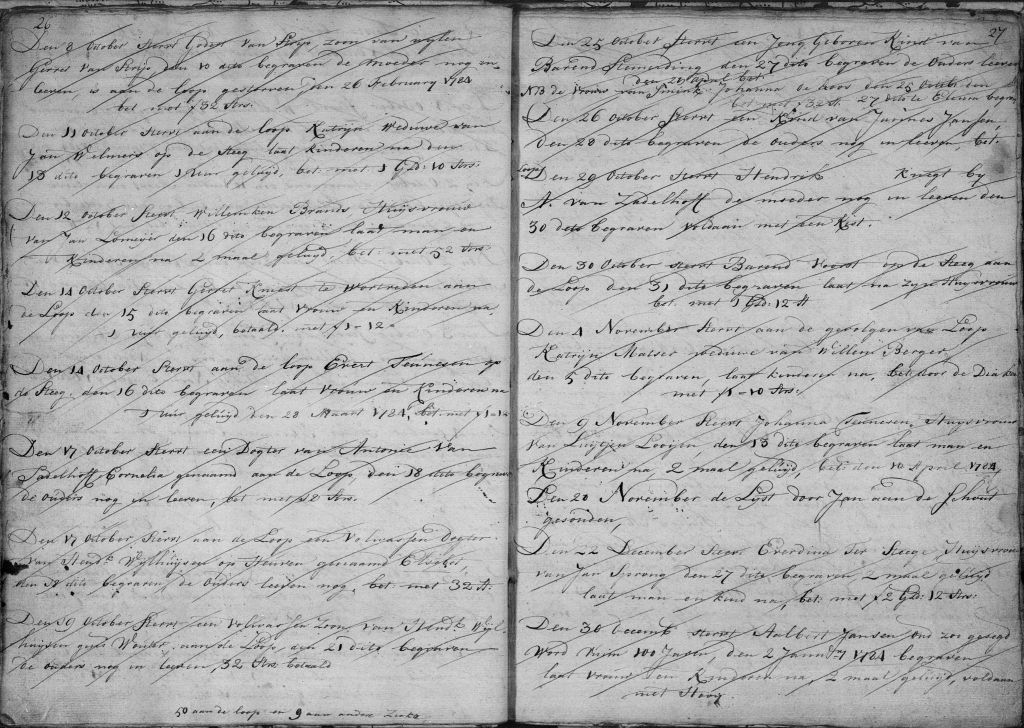 26
Den 8 October Sterft Godert van Strijp, zoon van wylen
Gerret van Strijp den 10 dito begraven de moeder nog in
leeven, is aan de loop gestorven Den 26 February 1784
bet met f32 Strs.
Den 11 October Sterft aan de loop Katryn Weduwe van
Jan Welmers op de Steeg laat kinderen na den
13 dito begraven 1 Uur geluyd, bet. met 1 Gld: 10 Strs:
Den 12 October Sterft Willemken Brands Huysvrouw
van Jan Lomeyer den 16 dito begraven laat man en
Kinderen na 2 maal geluyd, bet. met 52 Strs
Den 14 October Sterft Gerret te Wortreden aan
de Loop den 15 dito begraven laat vrouw en Kinderen na,
1 uur geluyd, betaald. met f1-12
Den 14 October Sterft aan de loop Evert Teunissen op
de Steeg. den 16 dito begraven laat vrouw en Kinderen na
1 uur geluyd den 28 Maart 1784, bet. met
Den 17 October Sterft een Dogter van Antonie van
Sadelhoff Cornelia genaamd aan de Loop, den 18 dito begraven
de ouders nog in leeven, bet met 32 Strs.
Den 17 October, Sterft aan de Loop een Volwassen Dogter
van Hendk Wylhuysen op Heuven genaamd
den dito begraven, de Ouders leeven nog, bet. met 32 st.
Den 19 October Sterft een Volwassen zoon van Hendk Wyl-
huysen gent Wouter aan de Loop, den 21 dito begraven
de ouders nog in leeven, 32 Strs betaald
50 aan de loop en 9 aan andere Ziekte
27
Den 25 October Sterft een Jong Geboren Kind van
Barend den 27 dito begraven de Ouders leeven
den 21 April bet.
NB de Vrouw van Johanna de den 25 Octob
bet met 32 St. 27 dito begrav
Den 26 October Sterft een Kind van Jannes Jansen,
den 28 dito begraven de ouders nog in leeven, bet.
Loop
Den 29 October Sterft Hendrik Knegt by
A. van Zadelhoff de moeder nog in leeven den
30 dito begraven voldaan met een Kist.
Den 30 October sterft Barend Voorst op de Steeg aan
de Loop den 31 dito begraven laat na zyn Huysvrouw
bet. met 1 Gld: 12 st
Den 4 November Sterft aan de gevolgen van Loop
Katryn Matser weduwe van Willem Berger
den 5 dito begraven, laat kinderen na, bet. door de Diakon
met f1-10 Strs:
Den 9 November Sterft Johanna Teunissen, Huysvrouw
van Luytjen Looijen den 13 dito begraven laat man en
Kinderen na, 2 maal geluyd, bet: den 10 April 1784,
Den 20 November de Lyst door Jan aan de Schout
gesonden,
Den 22 December Sterft Everdina Ter Steege Huysvrouw
van Jan Sprong den 27 dito begraven 2 maal geluyd
laat man en kind na, bet: met f2 Gld: 12 Strs:
Den 30 Decemb sterft Aalbert Jansen out zoo gesegd
Word ruim 100 Jaren, den 2 Januar 1784 begraven
laat vrouw en Kinderen na, 2 maal geluyd, voldaan
met Hooy.